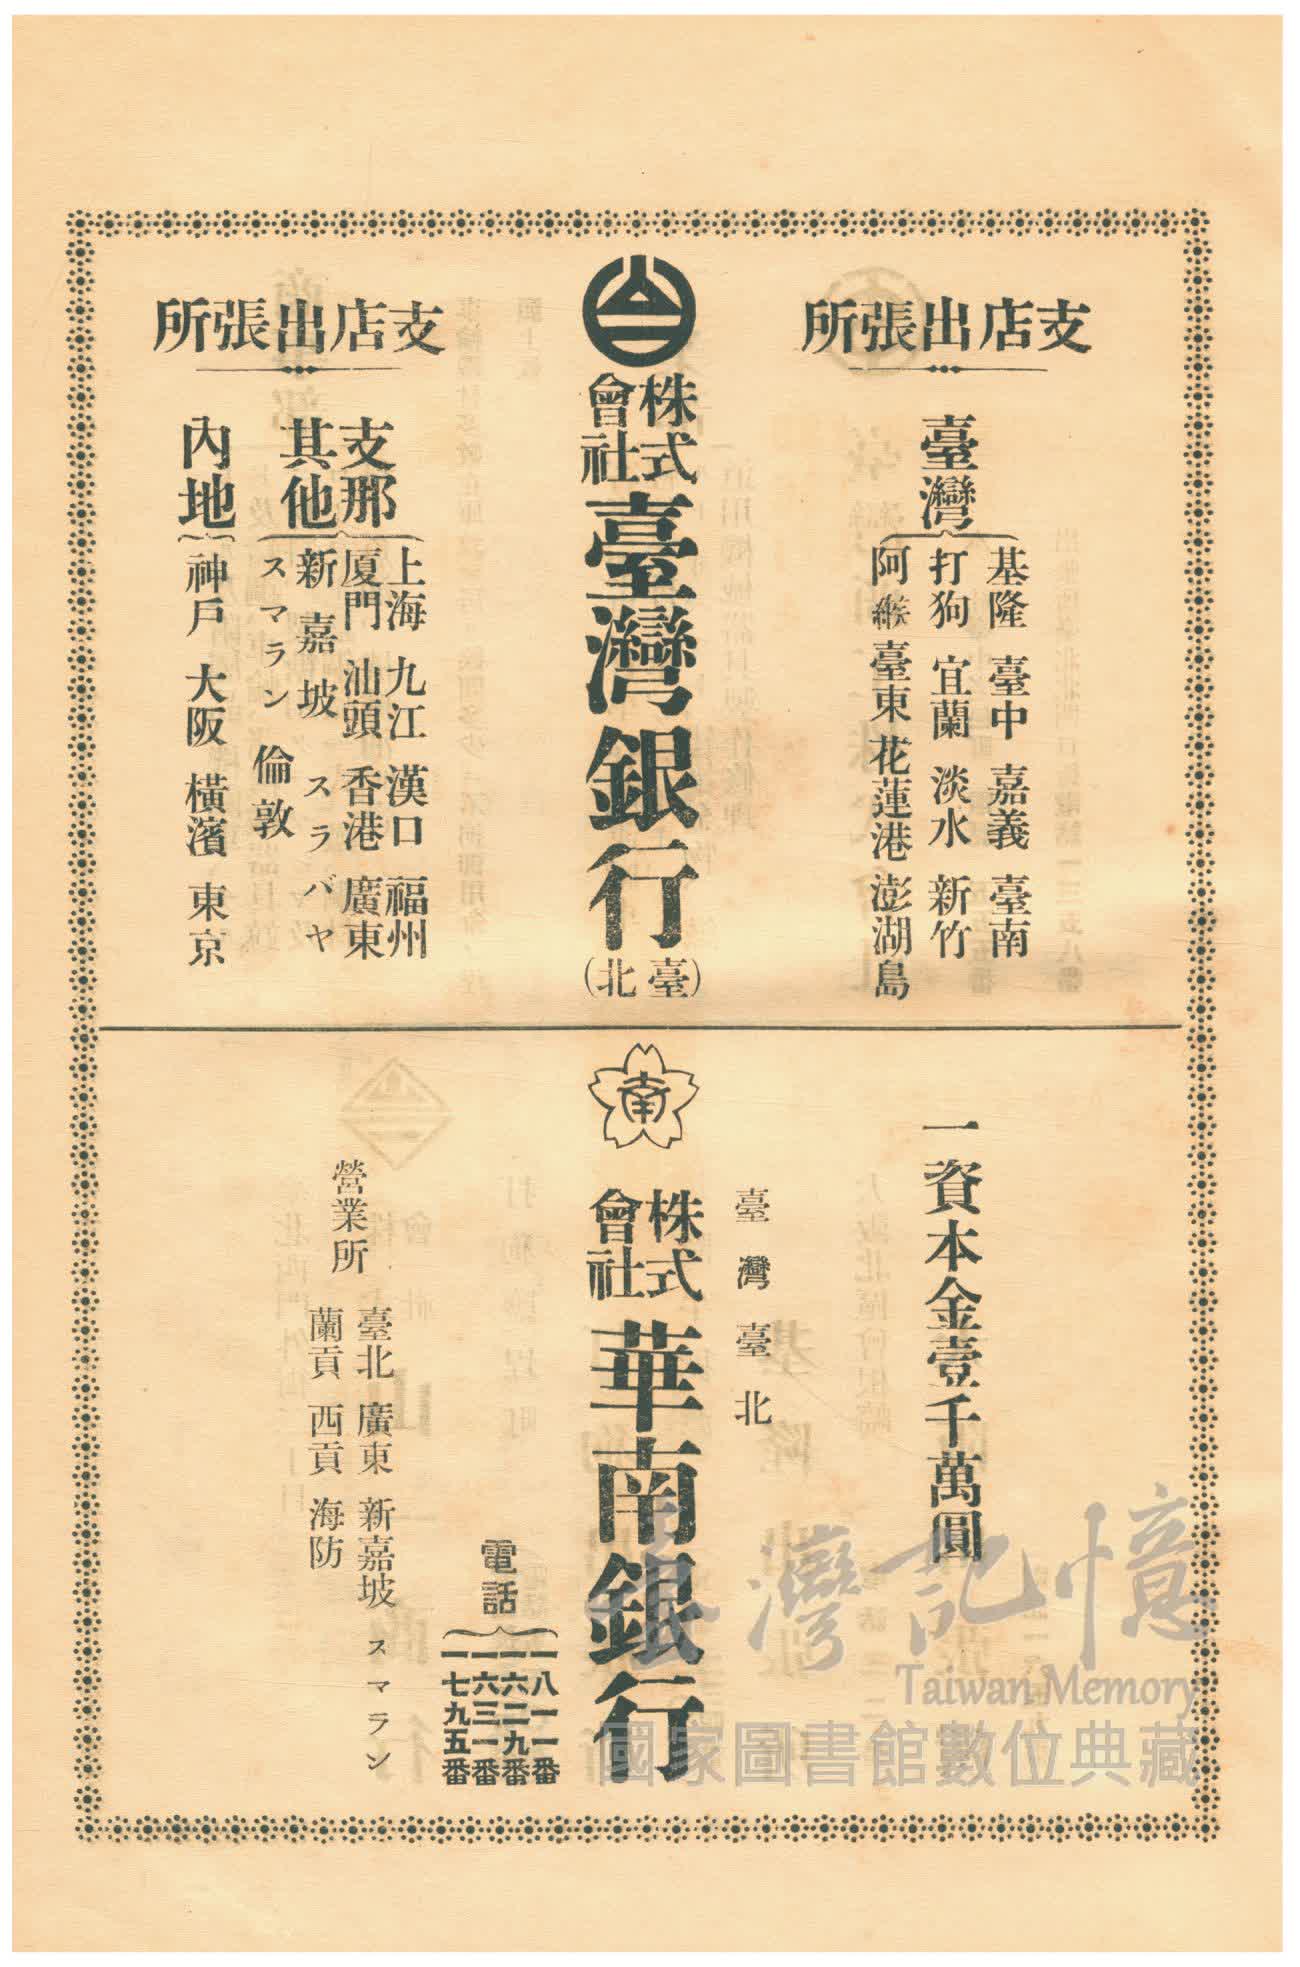 支店出張所
臺灣
基隆 臺中 嘉義 臺南
打狗 宜蘭 淡水 新竹
阿緱 臺東 花蓮港 澎湖島
株式會社
臺灣銀行
(臺北)
支店出張所
支那其他
上海 九江 漢口 福州
厦門 汕頭 香港 廣東
新嘉坡 スラバヤ
スマラン 倫敦
內地
神戶 大阪 橫濱 東京
一資本金壹千萬圓
臺灣臺北
南
株式會社
華南銀行
電話
一八一一番
一六二九番
一六三一番
一七九五番
營業所
臺北 廣東 新嘉坡 スマラン
蘭貢 西貢 海防
臺灣記憶
Taiwan Memory
國家圖書館數位典藏